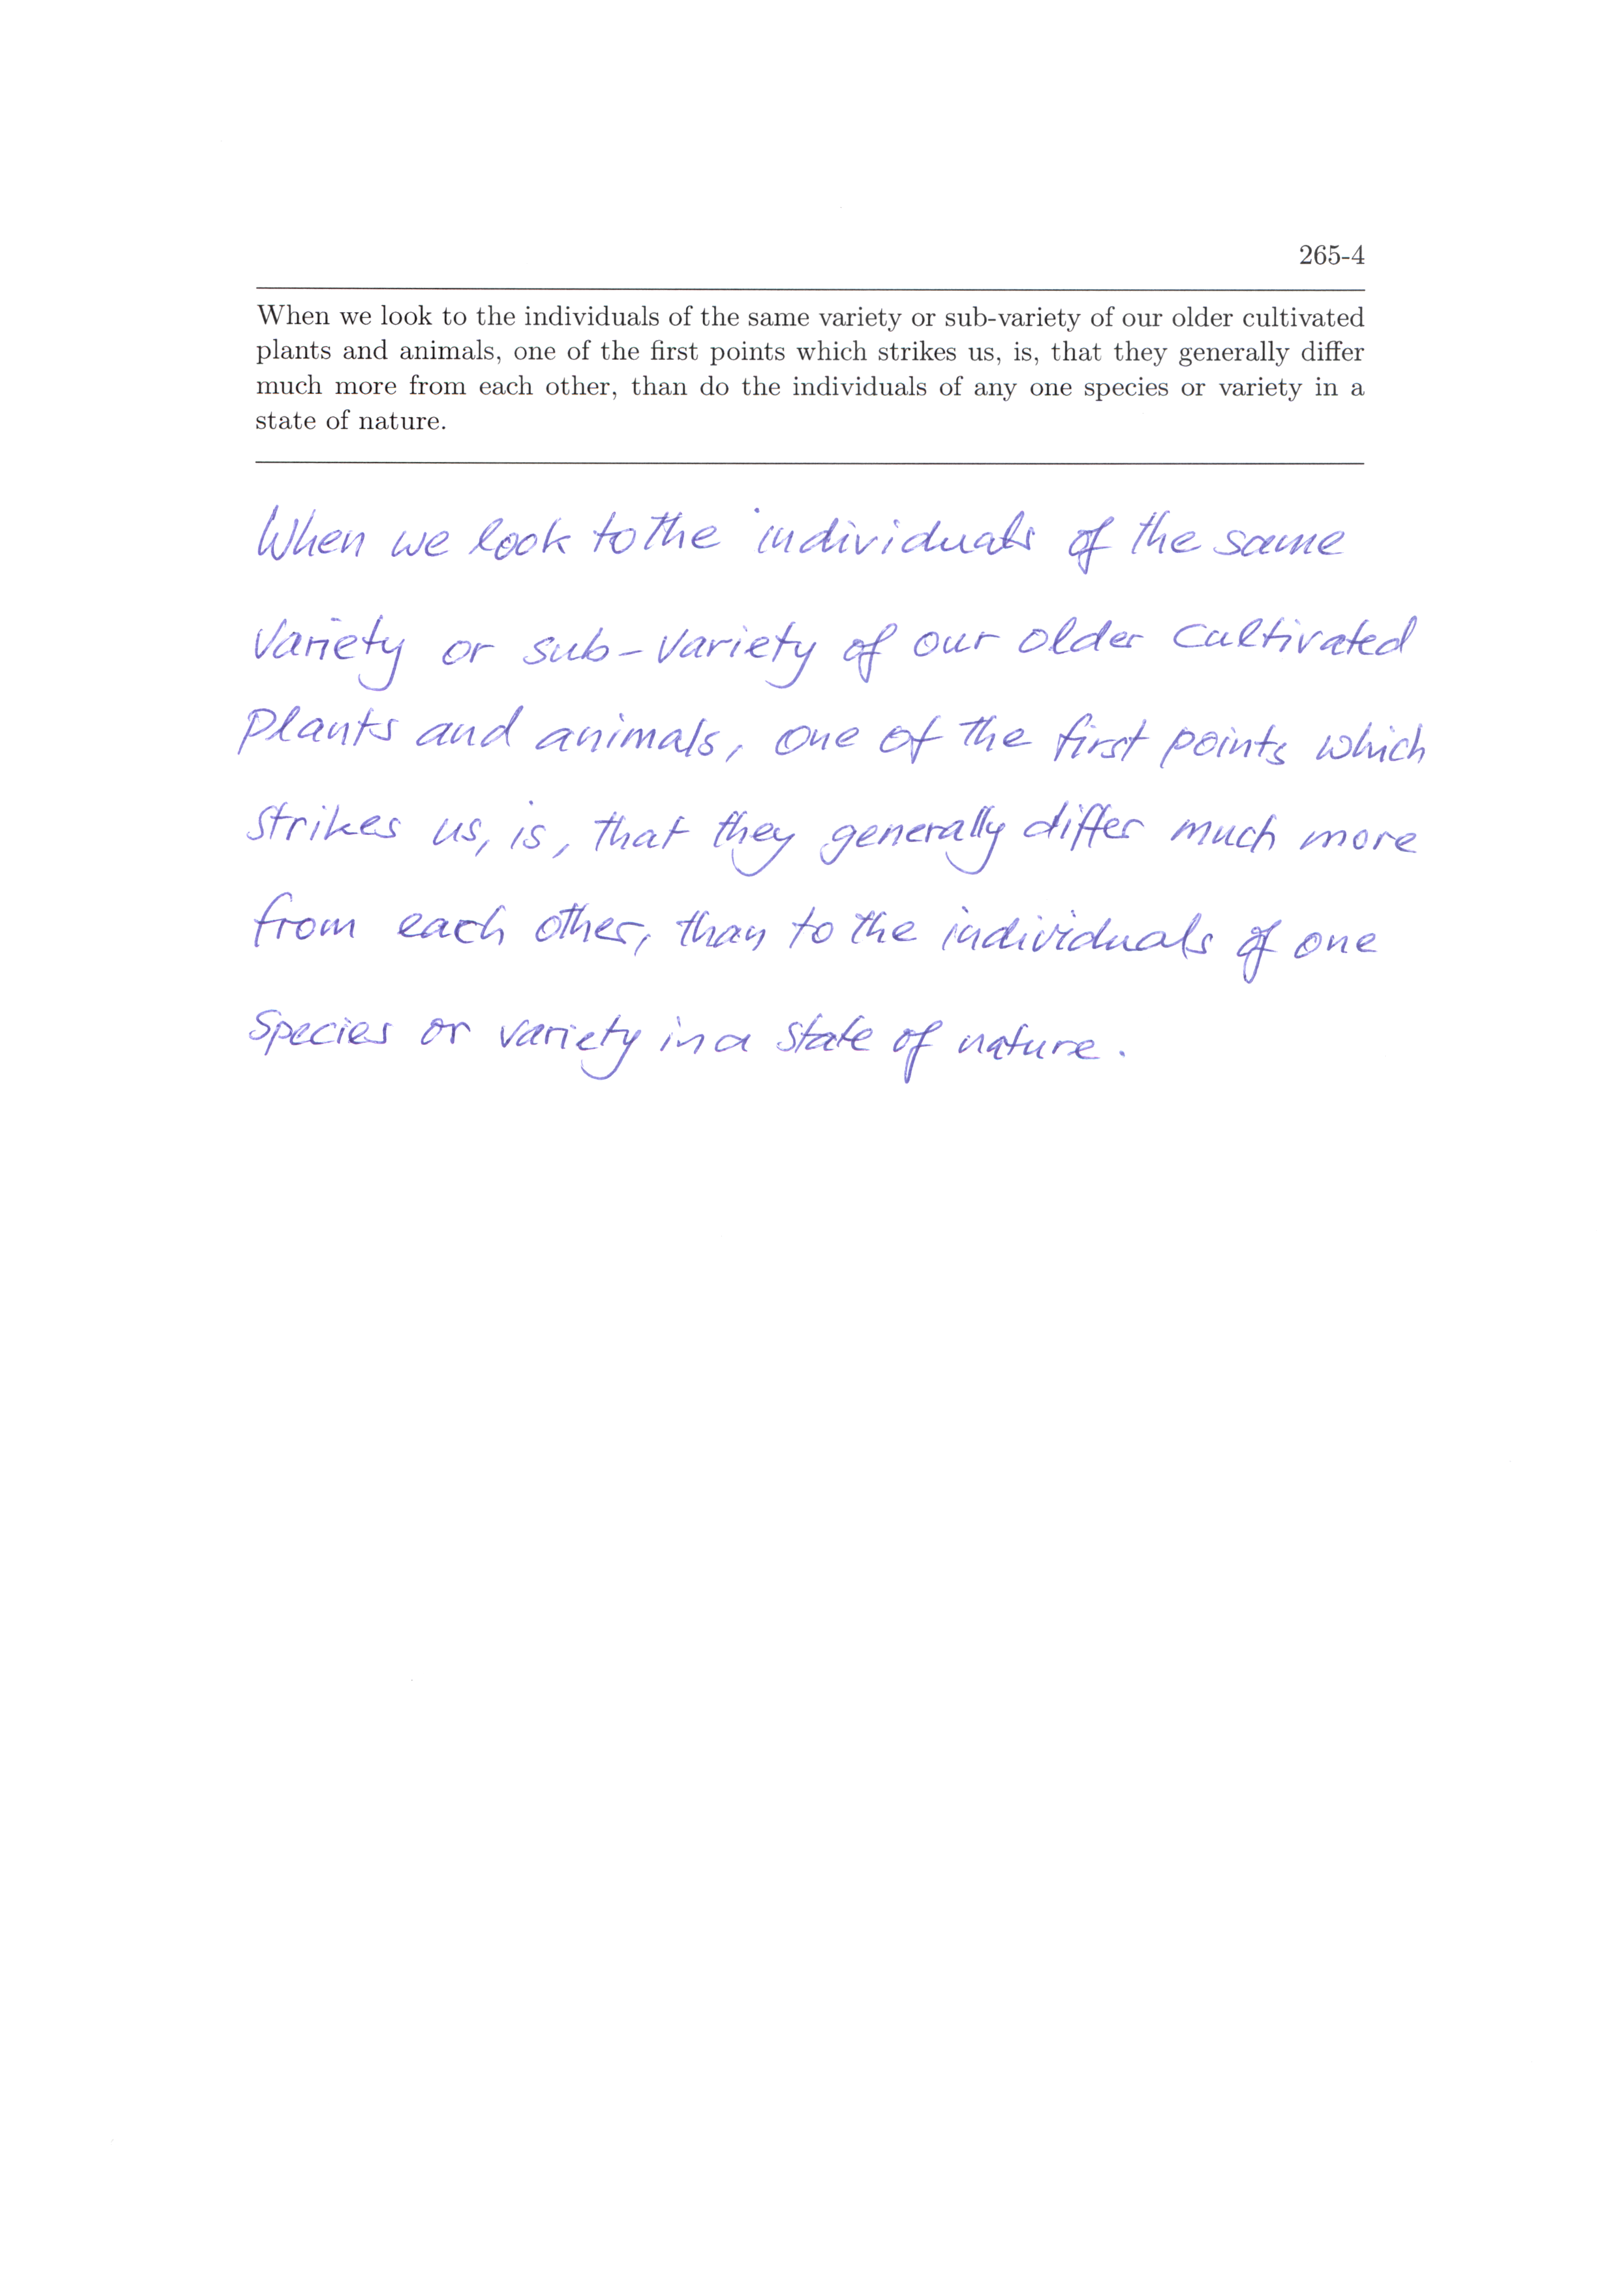 265-4
When we look to the individuals of the same variety or sub-variety of our older cultivated
plants and animals, one of the first points which strikes us, is, that they generally differ
much more from each other, than do the individuals of any one species or variety in a
state of nature.
When we look to the individuals of the same
variety or sub-variety of our older cultivated
plants and animals, one of the first points which
strikes us, is, that they generally differ much more
from each other, than to the individuals of one
species or variety in a state of nature.